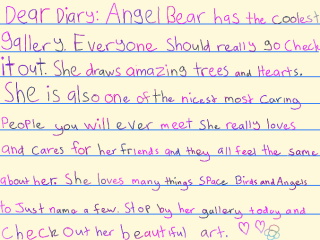 Dear Diary: Angel Bear has the coolest
gallery. Everyone Should really go Check
it out. She draws amazing trees and Hearts.
She is also one of the nicest most Caring
People you will ever meet She really loves
and cares for her friends and they all feel the same
about her. She loves many things Space Birds and Angels
to Just name a few. Stop by her gallery today and
Check Out her beautiful art.